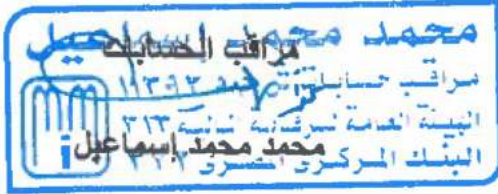 محمد محمد إسماعيل
مراقب الحسابات
مراقب حسابات
الهيئة العامة للرقابة المالية ٣١٣
محمد محمد إسماعيل
البنك المركزى المصرى